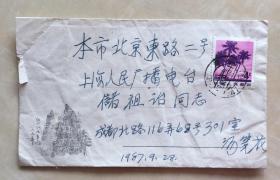 本市北京東路二号
上海人民广播电台
储祖诒同志
成都北路116弄68号301室
1987.9.28.